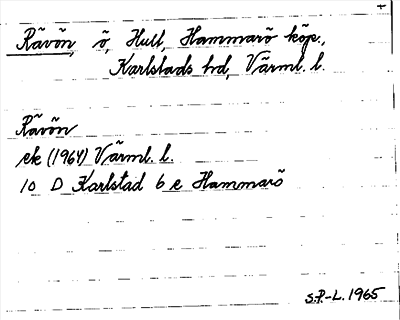 Rävön, ö, Hult, Hammarö köp.,
Karlstads hd, Värml. l.
Rävön
ek (1964) Värml. l.
10 D Karlstad 6 e Hammarö
S.P.-L. 1965